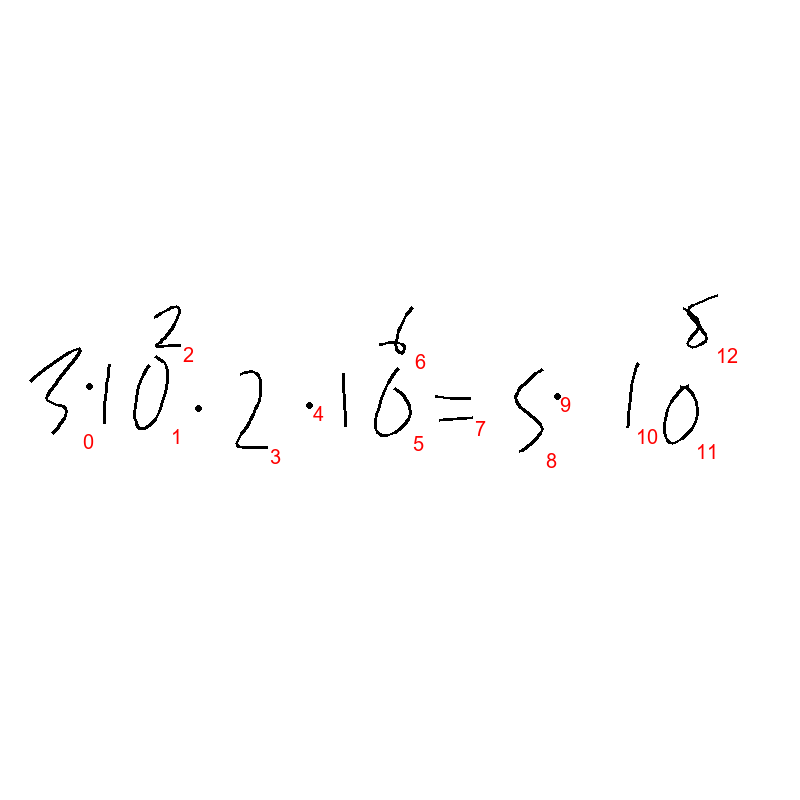 3·10² · 2 · 10⁶ = 5 · 10⁸
0 1 2 3 4 5 6 7 8 9 10 11 12